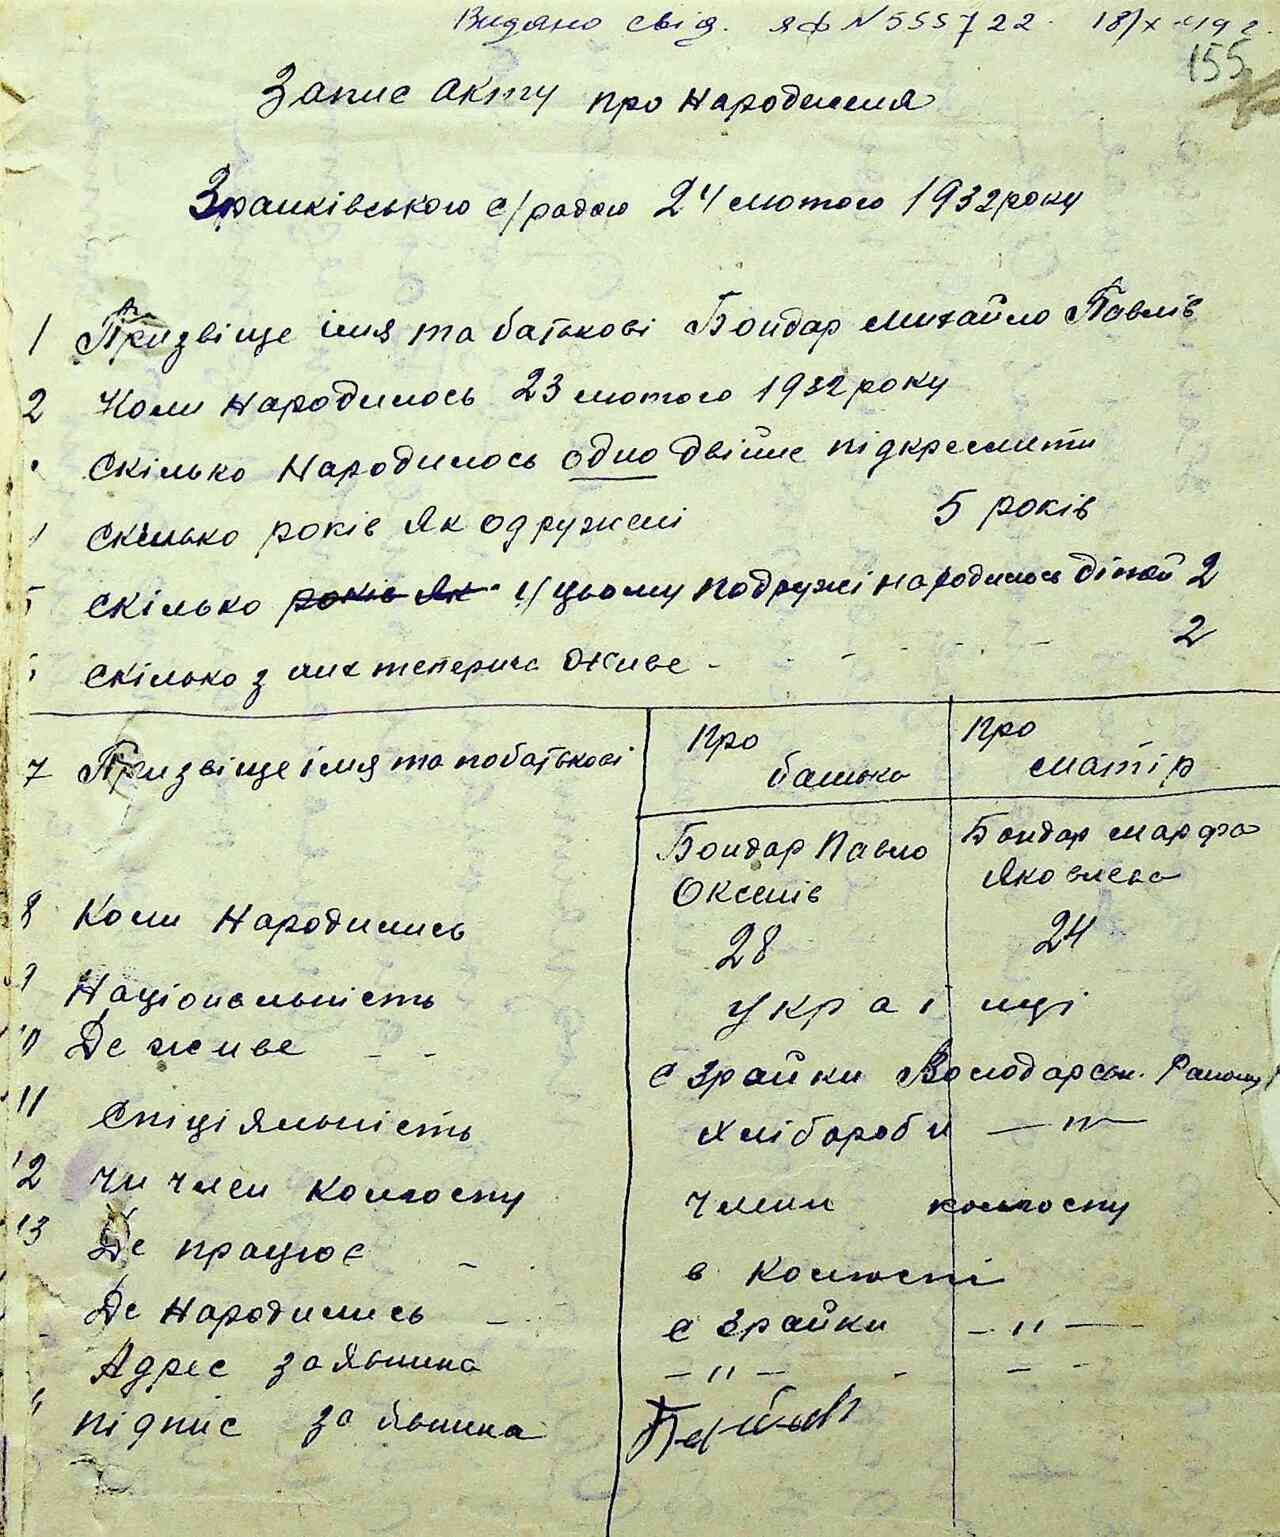 Видано свід. ЯФ N 555722. 18/X
155
Запис акту про Народження
Зрайківською с/радою 24 лютого 1932 року
1 Призвіще імя та батькові Бондар Михайло Павлів
2 Коли Народилось 23 лютого 1932 року
Скілько Народилось одно двійне підкреслити
Скілько років Як одружені 5 років
5 Скілько років Як У цьому подружі народилось дітей 2
Скілько з них теперича живе - 2
7 Призвіще імя та побатькові Про батька Про матір
Бондар Павло Оксенів Бондар Марфа Яковлева
8 Коли Народились 28 24
9 Національність українці
10 Де живе - - с Зрайки Володарськ. Району
11 Спіціяльність хлібороби — " —
12 Чи член колгоспу члени колгоспу
13 Де працює - в колгоспі
Де Народились - с Зрайки — " —
Адрес заявника — " — - -
" підпис заявника